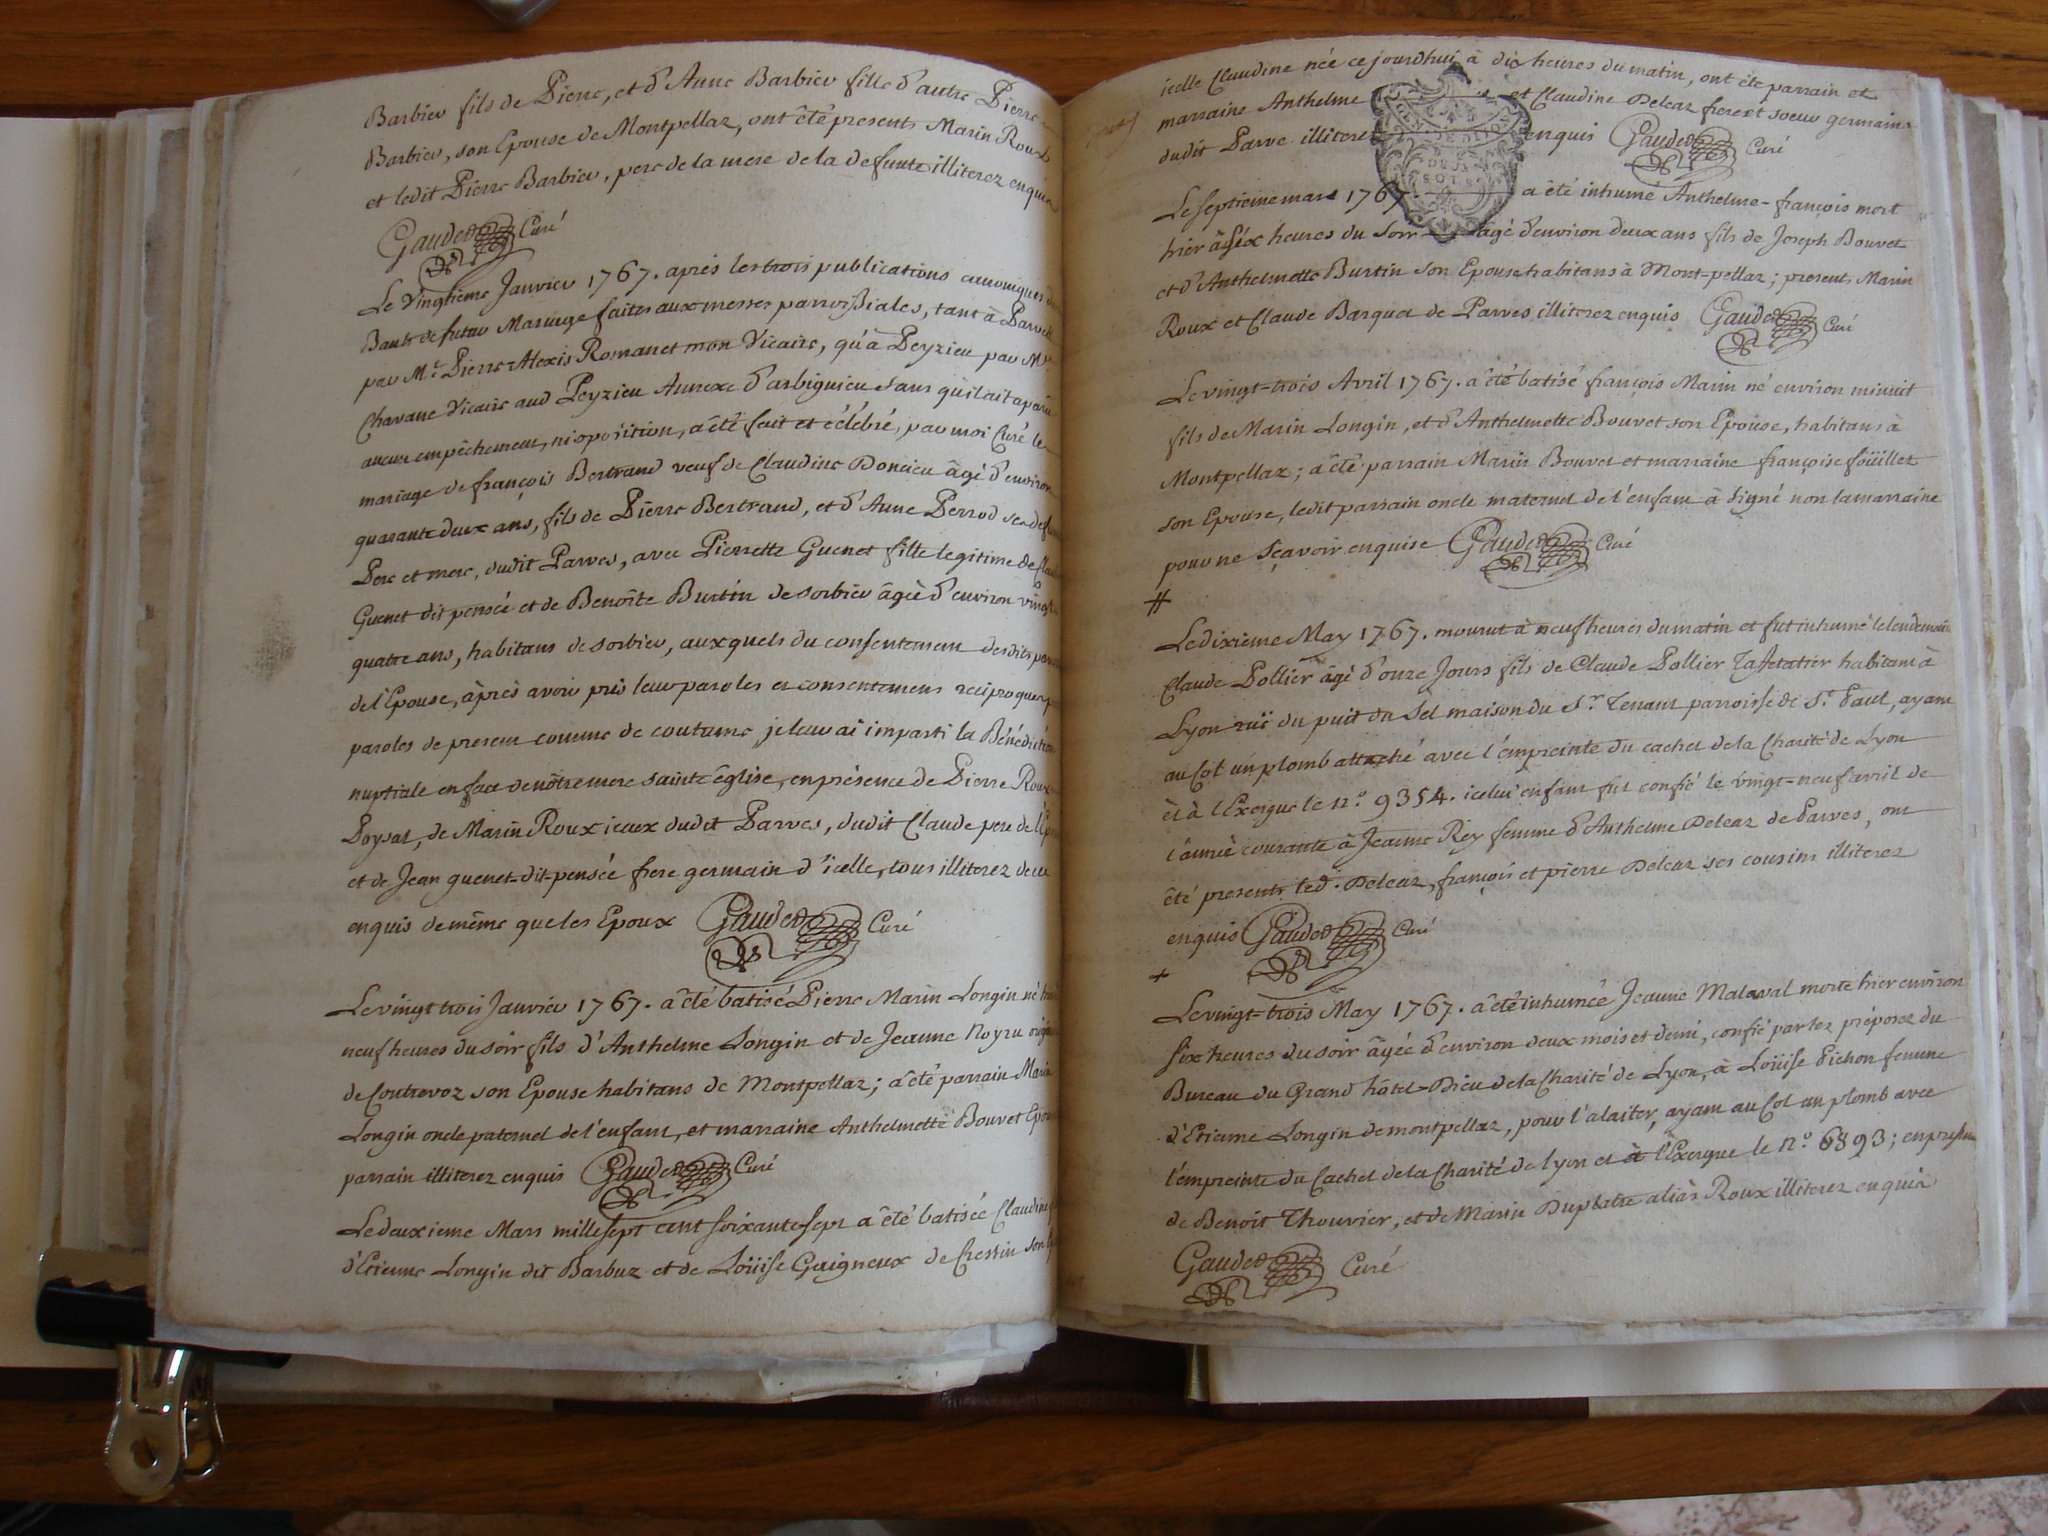 Barbier fils de Pierre, et d'Anne Barbier fille d'autre Pierre
Barbier, son Epouse de Montpellaz, ont êté presents Marin Roux
et ledit Pierre Barbier, pere de la mere de la defunte illiterez enquis
Gaudet Curé
Le Vingtieme Janvier 1767. aprés les trois publications canoniques
Bants de futur Mariage faites aux messes parroissiales, tant à Parves
par Mr. Pierre Alexis Romanet mon Vicaire, qu'à Peyzieu par Mr
Chavane Vicaire aud Peyzieu Annexe d'arbignieu sans qu'il ait aparu
aucun empêchement, ni oposition, a êté fait et célébré, par moi Curé le
mariage de françois Bertrand veuf de Claudine Doncieu âgé d'environ
quarante deux ans, fils de Pierre Bertrand, et d'Anne Perrod ses
Pere et mere, dudit Parves, avec Pierrette Guenet fille legitime de
Guenet dit pensée et de Benoîte Burtin de sorbier âgée d'environ vingt
quatre ans, habitans de sorbier, auxquels du consentement desdits
de l'Epouse, àprès avoir pris leur paroles et consentemens reciproques
paroles de present comme de coutume, je leur ai imparti la Bénédiction
nuptiale en face de nôtre mere sainte êglise, en présence de Pierre Roux
Poysat, de Marin Roux iceux dudit Parves, dudit Claude pere de
et de Jean guenet-dit-pensée frere germain d'icelle, tous illiterez de ce
enquis de même que les Epoux Gaudet Curé
Le vingt trois Janvier 1767. a êté batisé Pierre Marin Longin né
neuf heures du soir fils d'Anthelme Longin et de Jeanne Noyru
de Contrevoz son Epouse habitans de Montpellaz; a êté parrain Marin
Longin oncle paternel de l'enfant, et marraine Anthelmette Bouvet
parrain illiterez enquis Gaudet Curé
Le deuxieme Mars mille sept cent soixante-sept a êté batisée Claudine
d'Etienne Longin dit Barbuz et de Loüise Guigneux de Cressin son
icelle Claudine née ce jourdhui à dix heures du matin, ont éte parrain et
marraine Anthelme et Claudine Deleaz frere et soeur germains
dudit Parve illiterez enquis Gaudet Curé
Le septieme mars 1767 a êté inhumé Anthelme-françois mort
hier à six heures du soir âgé d'environ deux ans fils de Joseph Bouvet
et d'Anthelmette Burtin son Epouse habitans à Mont-pellaz; presents Marin
Roux et Claude Barquet de Parves illiterez enquis Gaudet Curé
Le vingt-trois Avril 1767. a êté batisé françois Marin né environ minuit
fils de Marin Longin, et d'Anthelmette Bouvet son Epouse, habitans à
Montpellaz; a êté parrain Marin Bouvet et marraine françoise foüillet
son Epouse, ledit parrain oncle maternel de l'enfant à signé non la marraine
pour ne sçavoir enquise Gaudet Curé
#
Le dixieme May 1767. mourut à neuf heures du matin et fut inhumé le lendemain
Claude Pollier âgé d'onze Jours fils de Claude Pollier Taffetatier habitant à
Lyon ruë du puit du Sel maison du Sr. Tenant parroisse de St. Paul, ayant
au Col un plomb attaché avec l'empreinte du cachet de la Charité de Lyon
et à l'Exergue le n.o 9354. icelui enfant fut confié le vingt-neuf avril de
l'année courante à Jeanne Rey femme d'Anthelme Deleaz de Parves, ont
êté presents led. Deleaz, françois et pierre Deleaz ses cousins illiterez
enquis Gaudet Curé
+
Le vingt-trois May 1767. a êté inhumée Jeanne Malaval morte hier environ
six heures du soir âgée d'environ deux mois et demi, confié par les préposez du
Bureau du Grand hôtel-Dieu de la Charité de Lyon, à Loüise Pichon femme
d'Etienne Longin de montpellaz, pour l'alaiter, ayant au Col un plomb avec
l'empreinte du Cachet de la Charité de lyon et à l'Exergue le n.o 6893; en presence
de Benoit Thouvier, et de Marin Duplatre aliàs Roux illiterez enquis
Gaudet Curé